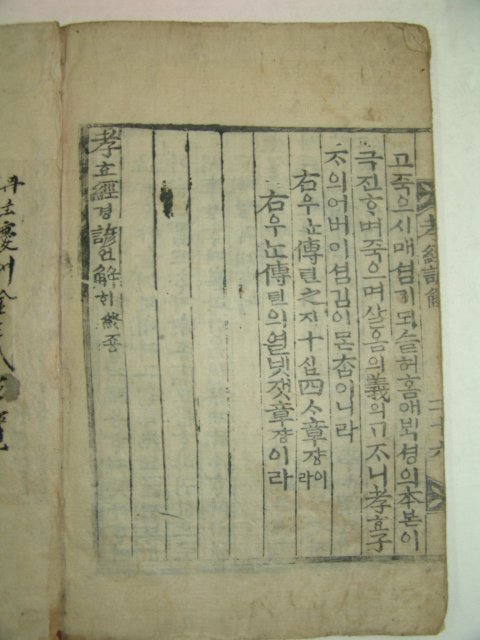 孝經諺解
고죽으시매셤기ᄃᆡ슬허홈애ᄇᆡᆨ셩의本본이
극진ᄒᆞ며죽으며살음의義의ᄀᆞᄌᆞ니孝효子
ᄌᆞ의어버이셤김이ᄆᆞᄎᆞᆷ이니라
右우ᄂᆞᆫ傳뎐之지十십四ᄉᆞ章쟝이라
右우ᄂᆞᆫ傳뎐의열넷잿章쟝이라
孝효經경諺언解ᄒᆡ終죵